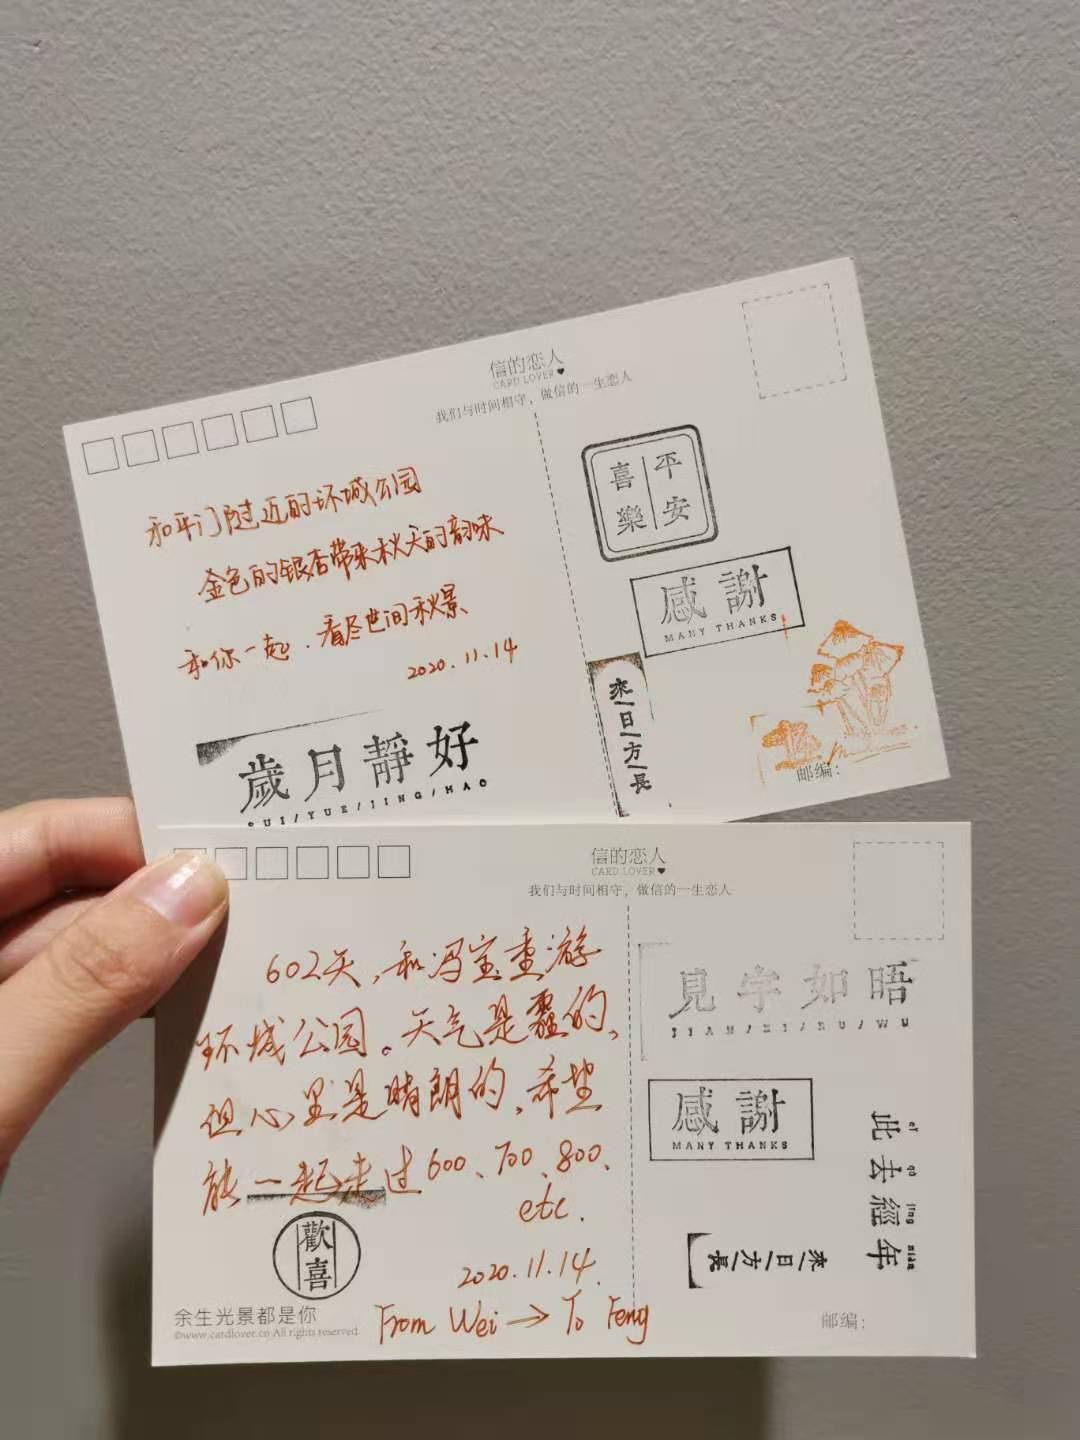 信的恋人
CARD LOVER
我们与时间相守，做信的一生恋人
和平门附近的环城公园
金色的银杏带来秋天的韵味
和你一起，看尽世间秋景
2020.11.14
歲月靜好
SUI/YUE/JING/HAO
平安
喜樂
感謝
MANY THANKS
來日方長
邮编：
信的恋人
CARD LOVER
我们与时间相守，做信的一生恋人
602天，和冯宝重游
环城公园。天气是霾的，
但心里是晴朗的，希望
能一起走过600、700、800、
etc.
2020.11.14.
From Wei → To Feng
歡喜
余生光景都是你
©www.cardlover.cn All rights reserved.
見字如晤
JIAN/ZI/RU/WU
感謝
MANY THANKS
此去經年
qù jīng nián
來日方長
邮编：